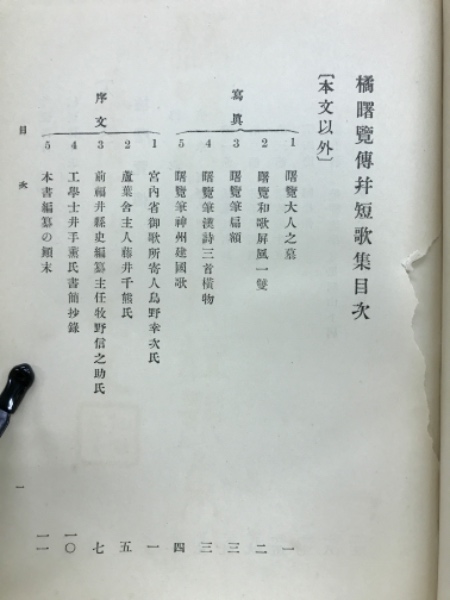 橘曙覽傳幷短歌集目次
〔本文以外〕
寫眞
1 曙覽大人之墓 一
2 曙覽和歌屛風一雙 二
3 曙覽筆扁額 三
4 曙覽筆漢詩三首橫物 三
5 曙覽筆神州建國歌 四
序文
1 宮內省御歌所寄人鳥野幸次氏 一
2 蘆葉舍主人藤井千熊氏 五
3 前福井縣史編纂主任牧野信之助氏 七
4 工學士井手薰氏書簡抄錄 一〇
5 本書編纂の顚末 一一
目次 一